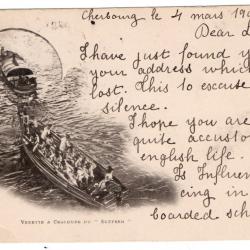 Cherbourg le 4 mars 190
Dear L
I have just found y
your address which
lost. This to excuse
silence.
I hope you are
quite accusto
english life.
Is Influen
cing in
boarded sch
VEDETTE & CHALOUPE DU "SUFFREN"